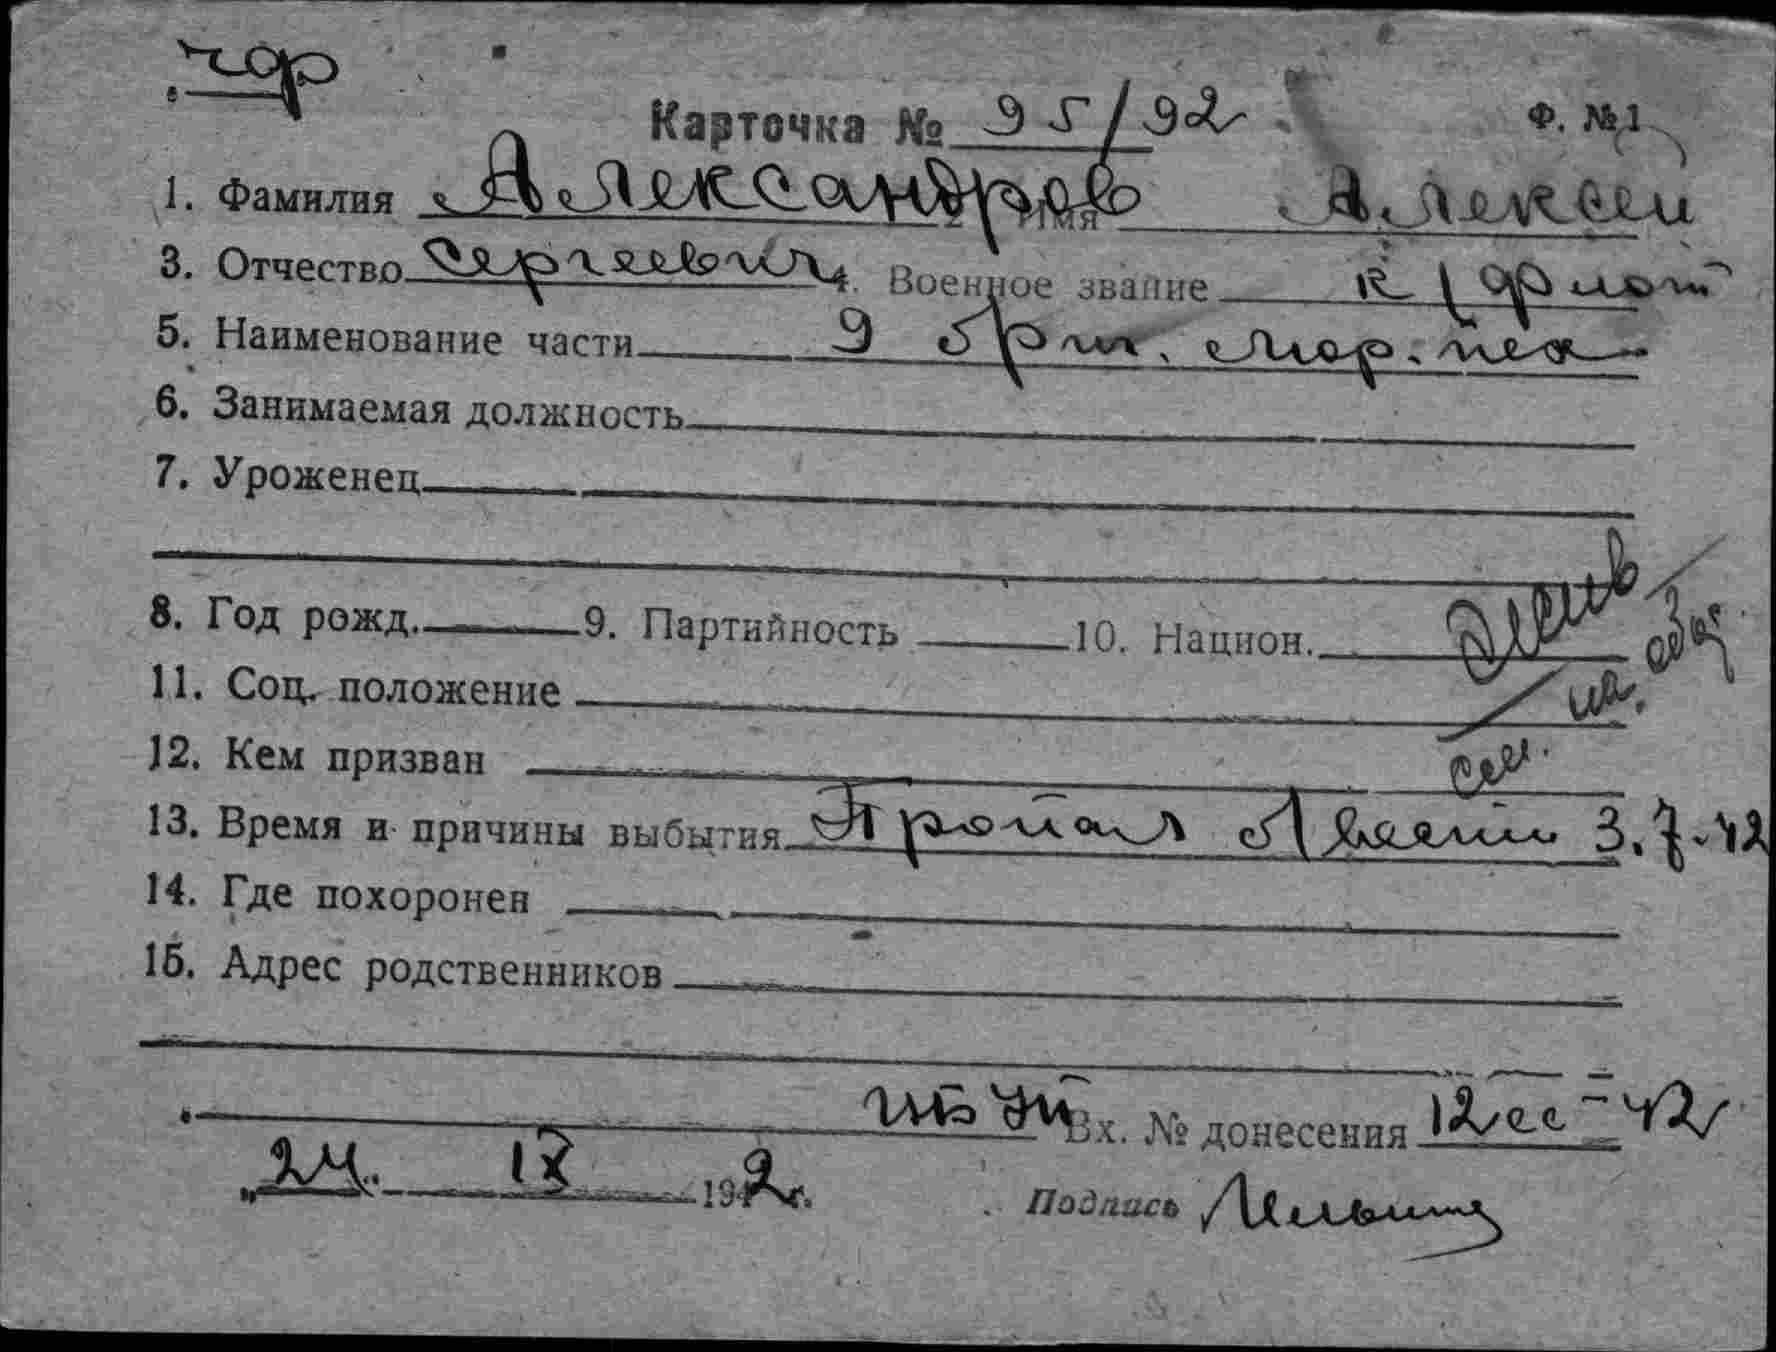 чф
Карточка № 95/92 Ф. № 1
1. Фамилия Александров Имя Алексей
3. Отчество Сергеевич 4. Военное звание к/флот
5. Наименование части 9 бриг. мор. пех
6. Занимаемая должность
7. Уроженец
8. Год рожд. 9. Партийность 10. Национ.
11. Соц. положение
12. Кем призван
13. Время и причины выбытия Пропал 3.7.42
14. Где похоронен
15. Адрес родственников
Вх. № донесения 12сс-42
„24. IX 1942г. Подпись